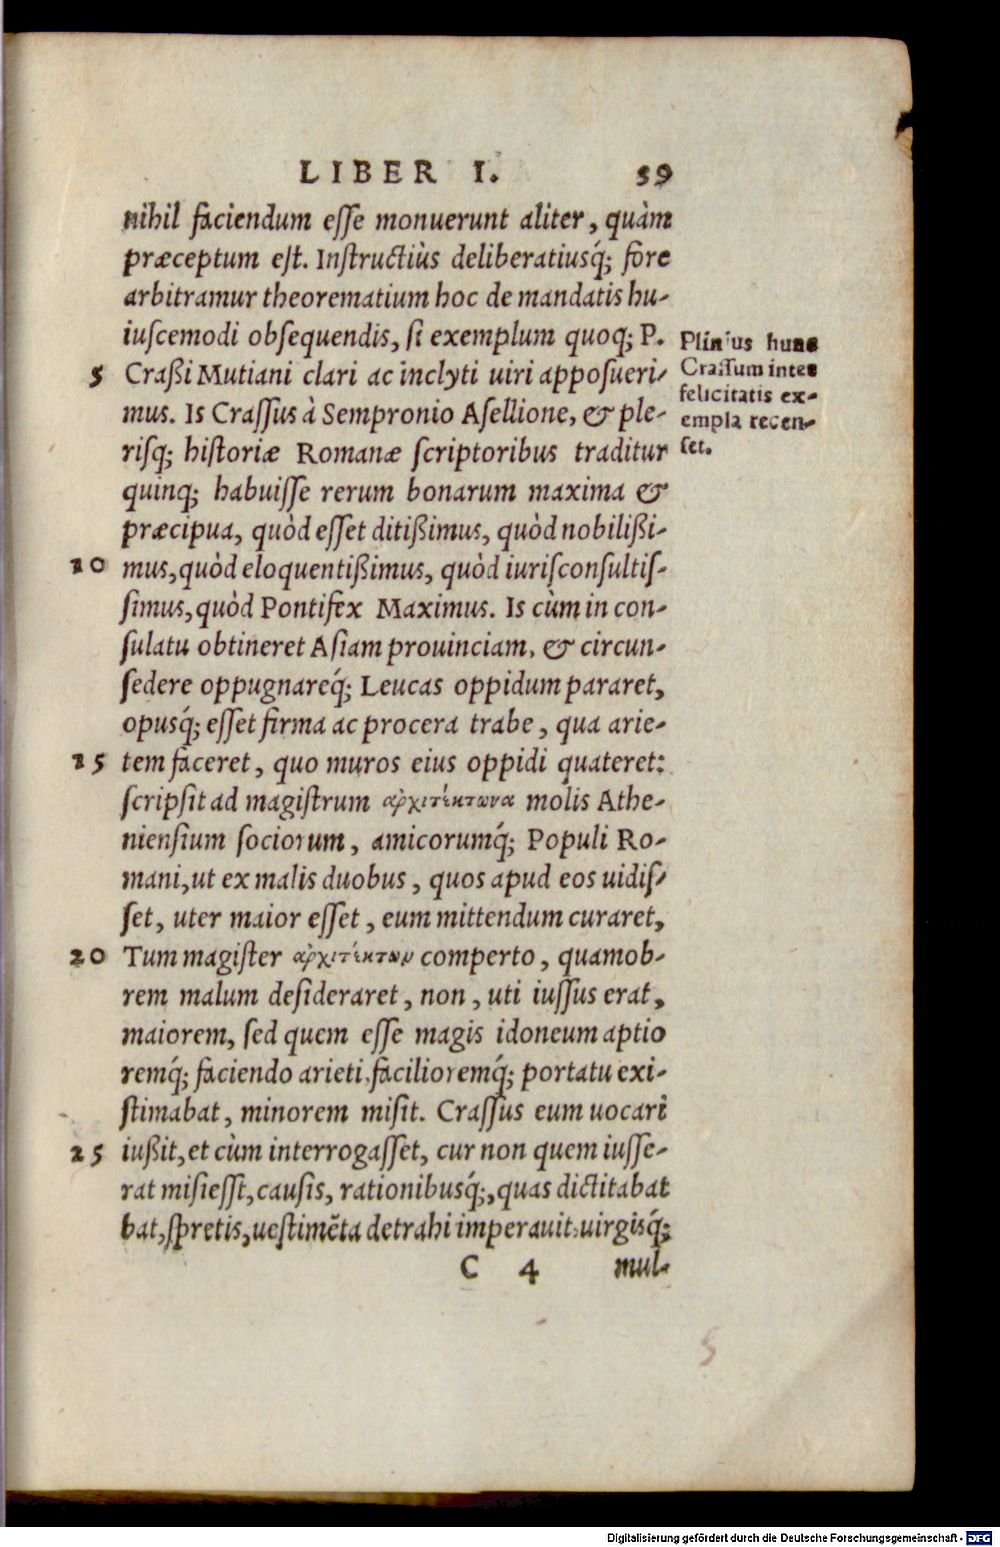 LIBER I. 59
nihil faciendum eſſe monuerunt aliter, quàm
præceptum eſt. Inſtructiùs deliberatiusq́; fore
arbitramur theorematium hoc de mandatis hu-
iuſcemodi obſequendis, ſi exemplum quoq; P.
5 Craßi Mutiani clari ac inclyti uiri appoſueri-
mus. Is Craſſus à Sempronio Aſellione, & ple-
riſq; hiſtoriæ Romanæ ſcriptoribus traditur
quinq; habuiſſe rerum bonarum maxima &
præcipua, quòd eſſet ditißimus, quòd nobilißi-
10 mus, quòd eloquentißimus, quòd iuriſconſultiſ-
ſimus, quòd Pontifex Maximus. Is cùm in con-
ſulatu obtineret Aſiam prouinciam, & circun-
ſedere oppugnareq́; Leucas oppidum pararet,
opusq́; eſſet firma ac procera trabe, qua arie-
15 tem faceret, quo muros eius oppidi quateret:
ſcripſit ad magiſtrum ἀρχιτέκτωνα molis Athe-
nienſium ſociorum, amicorumq́; Populi Ro-
mani, ut ex malis duobus, quos apud eos uidiſ-
ſet, uter maior eſſet, eum mittendum curaret,
20 Tum magiſter ἀρχιτέκτων comperto, quamob-
rem malum deſideraret, non, uti iuſſus erat,
maiorem, ſed quem eſſe magis idoneum aptio
remq́; faciendo arieti, facilioremq́; portatu exi-
ſtimabat, minorem miſit. Craſſus eum uocari
25 iußit, et cùm interrogaſſet, cur non quem iuſſe-
rat miſieſſt, cauſis, rationibusq́;, quas dictitabat
bat, ſpretis, ueſtimẽta detrahi imperauit: uirgisq́;
C 4 mul-
Plinius hunc
Craſſum inter
felicitatis ex-
empla recen-
ſet.
5
Digitalisierung gefördert durch die Deutsche Forschungsgemeinschaft - DFG